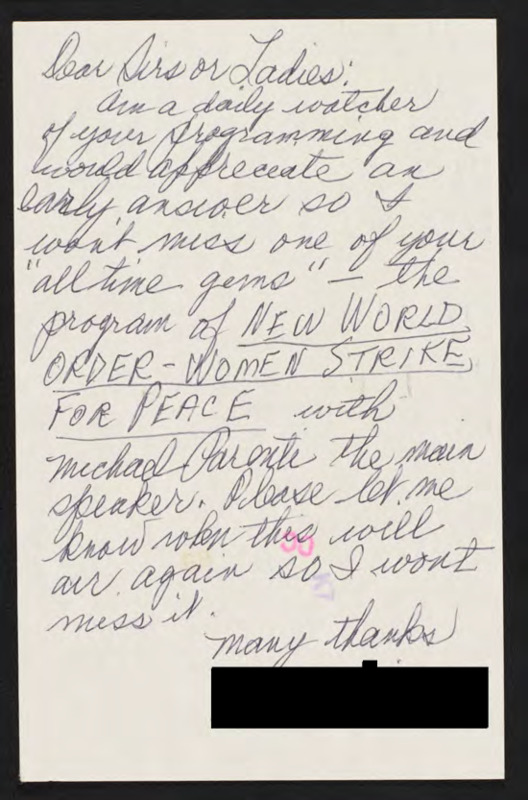 Dear Sirs or Ladies:
Am a daily watcher
of your programming and
would appreceate an
early answer so I
won't miss one of your
"all time gems" — the
program of NEW WORLD
ORDER-WOMEN STRIKE
FOR PEACE with
Michael Parenti the main
speaker. Please let me
know when this will
air again so I wont
miss it.
Many thanks